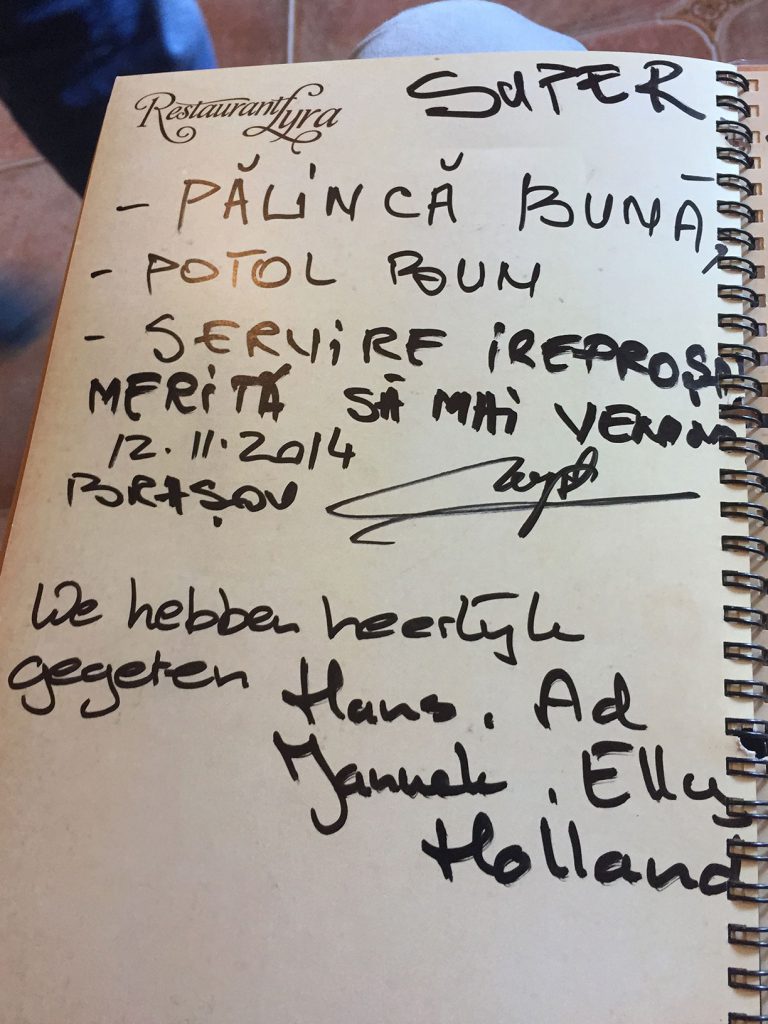 Restaurant Lyra
SUPER
- PĂLINCĂ BUNĂ,
- POTOL BOUM
- SERVIRE IREPROȘA
MERITĂ SĂ MAI
12.11.2014
BRAȘOV
We hebben heerlijk
gegeten Hans, Ad
Janneke, Elly
Holland